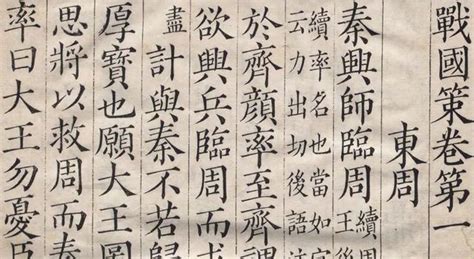 戰國策卷第一
東周
秦興師臨周
續
王後
續率名也當如字
云力出切後語注
於齊顔率至齊謂
欲興兵臨周而求
盡計與秦不若歸
厚寶也願大王圖
思將以救周而秦
率曰大王勿憂臣